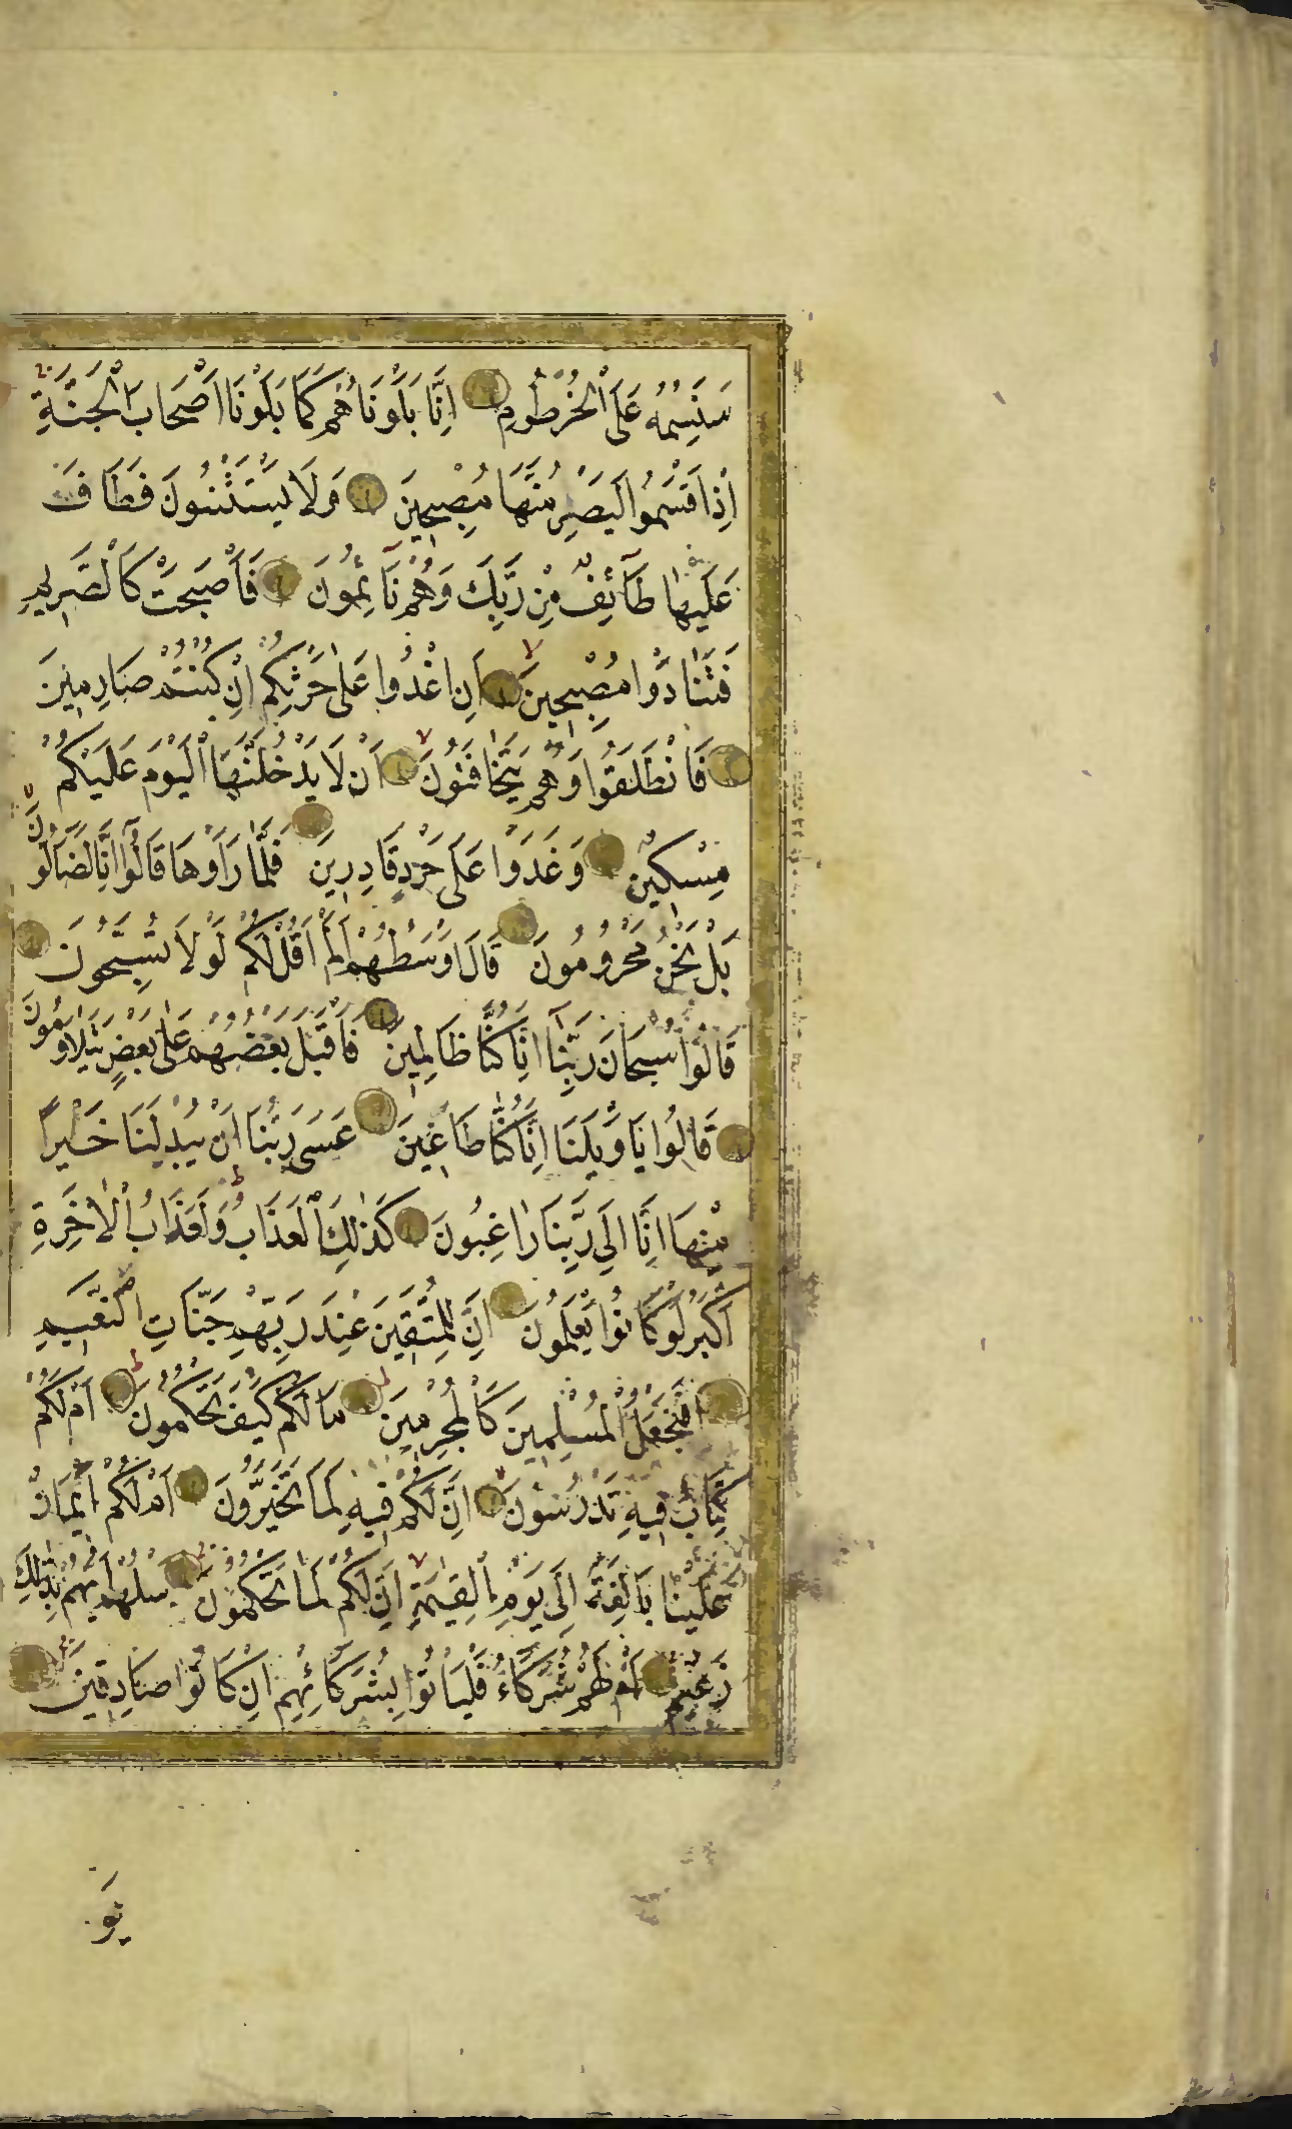 سَنَسِمُهُ عَلَى الْخُرْطُومِ اِنَّا بَلَوْنَاهُمْ كَمَا بَلَوْنَا اَصْحَابَ الْجَنَّةِ
اِذْ اَقْسَمُوا لَيَصْرِمُنَّهَا مُصْبِحِينَ وَلَا يَسْتَثْنُونَ فَطَافَ
عَلَيْهَا طَآئِفٌ مِنْ رَبِّكَ وَهُمْ نَائِمُونَ فَاَصْبَحَتْ كَالصَّرِيمِ
فَتَنَادَوْا مُصْبِحِينَ اَنِ اغْدُوا عَلَى حَرْثِكُمْ اِنْ كُنْتُمْ صَارِمِينَ
فَانْطَلَقُوا وَهُمْ يَتَخَافَتُونَ اَنْ لَا يَدْخُلَنَّهَا الْيَوْمَ عَلَيْكُمْ
مِسْكِينٌ وَغَدَوْا عَلَى حَرْدٍ قَادِرِينَ فَلَمَّا رَاَوْهَا قَالُوا اِنَّا لَضَآلُّونَ
بَلْ نَحْنُ مَحْرُومُونَ قَالَ اَوْسَطُهُمْ اَلَمْ اَقُلْ لَكُمْ لَوْلَا تُسَبِّحُونَ
قَالُوا سُبْحَانَ رَبِّنَا اِنَّا كُنَّا ظَالِمِينَ فَاَقْبَلَ بَعْضُهُمْ عَلَى بَعْضٍ يَتَلَاوَمُونَ
قَالُوا يَا وَيْلَنَا اِنَّا كُنَّا طَاغِينَ عَسَى رَبُّنَا اَنْ يُبْدِلَنَا خَيْرًا
مِنْهَا اِنَّا اِلَى رَبِّنَا رَاغِبُونَ كَذٰلِكَ الْعَذَابُ وَلَعَذَابُ الْاٰخِرَةِ
اَكْبَرُ لَوْ كَانُوا يَعْلَمُونَ اِنَّ لِلْمُتَّقِينَ عِنْدَ رَبِّهِمْ جَنَّاتِ النَّعِيمِ
اَفَنَجْعَلُ الْمُسْلِمِينَ كَالْمُجْرِمِينَ مَا لَكُمْ كَيْفَ تَحْكُمُونَ اَمْ لَكُمْ
كِتَابٌ فِيهِ تَدْرُسُونَ اِنَّ لَكُمْ فِيهِ لَمَا تَخَيَّرُونَ اَمْ لَكُمْ اَيْمَانٌ
عَلَيْنَا بَالِغَةٌ اِلَى يَوْمِ الْقِيٰمَةِ اِنَّ لَكُمْ لَمَا تَحْكُمُونَ سَلْهُمْ اَيُّهُمْ بِذٰلِكَ
زَعِيمٌ اَمْ لَهُمْ شُرَكَاءُ فَلْيَاْتُوا بِشُرَكَائِهِمْ اِنْ كَانُوا صَادِقِينَ
يَوْ